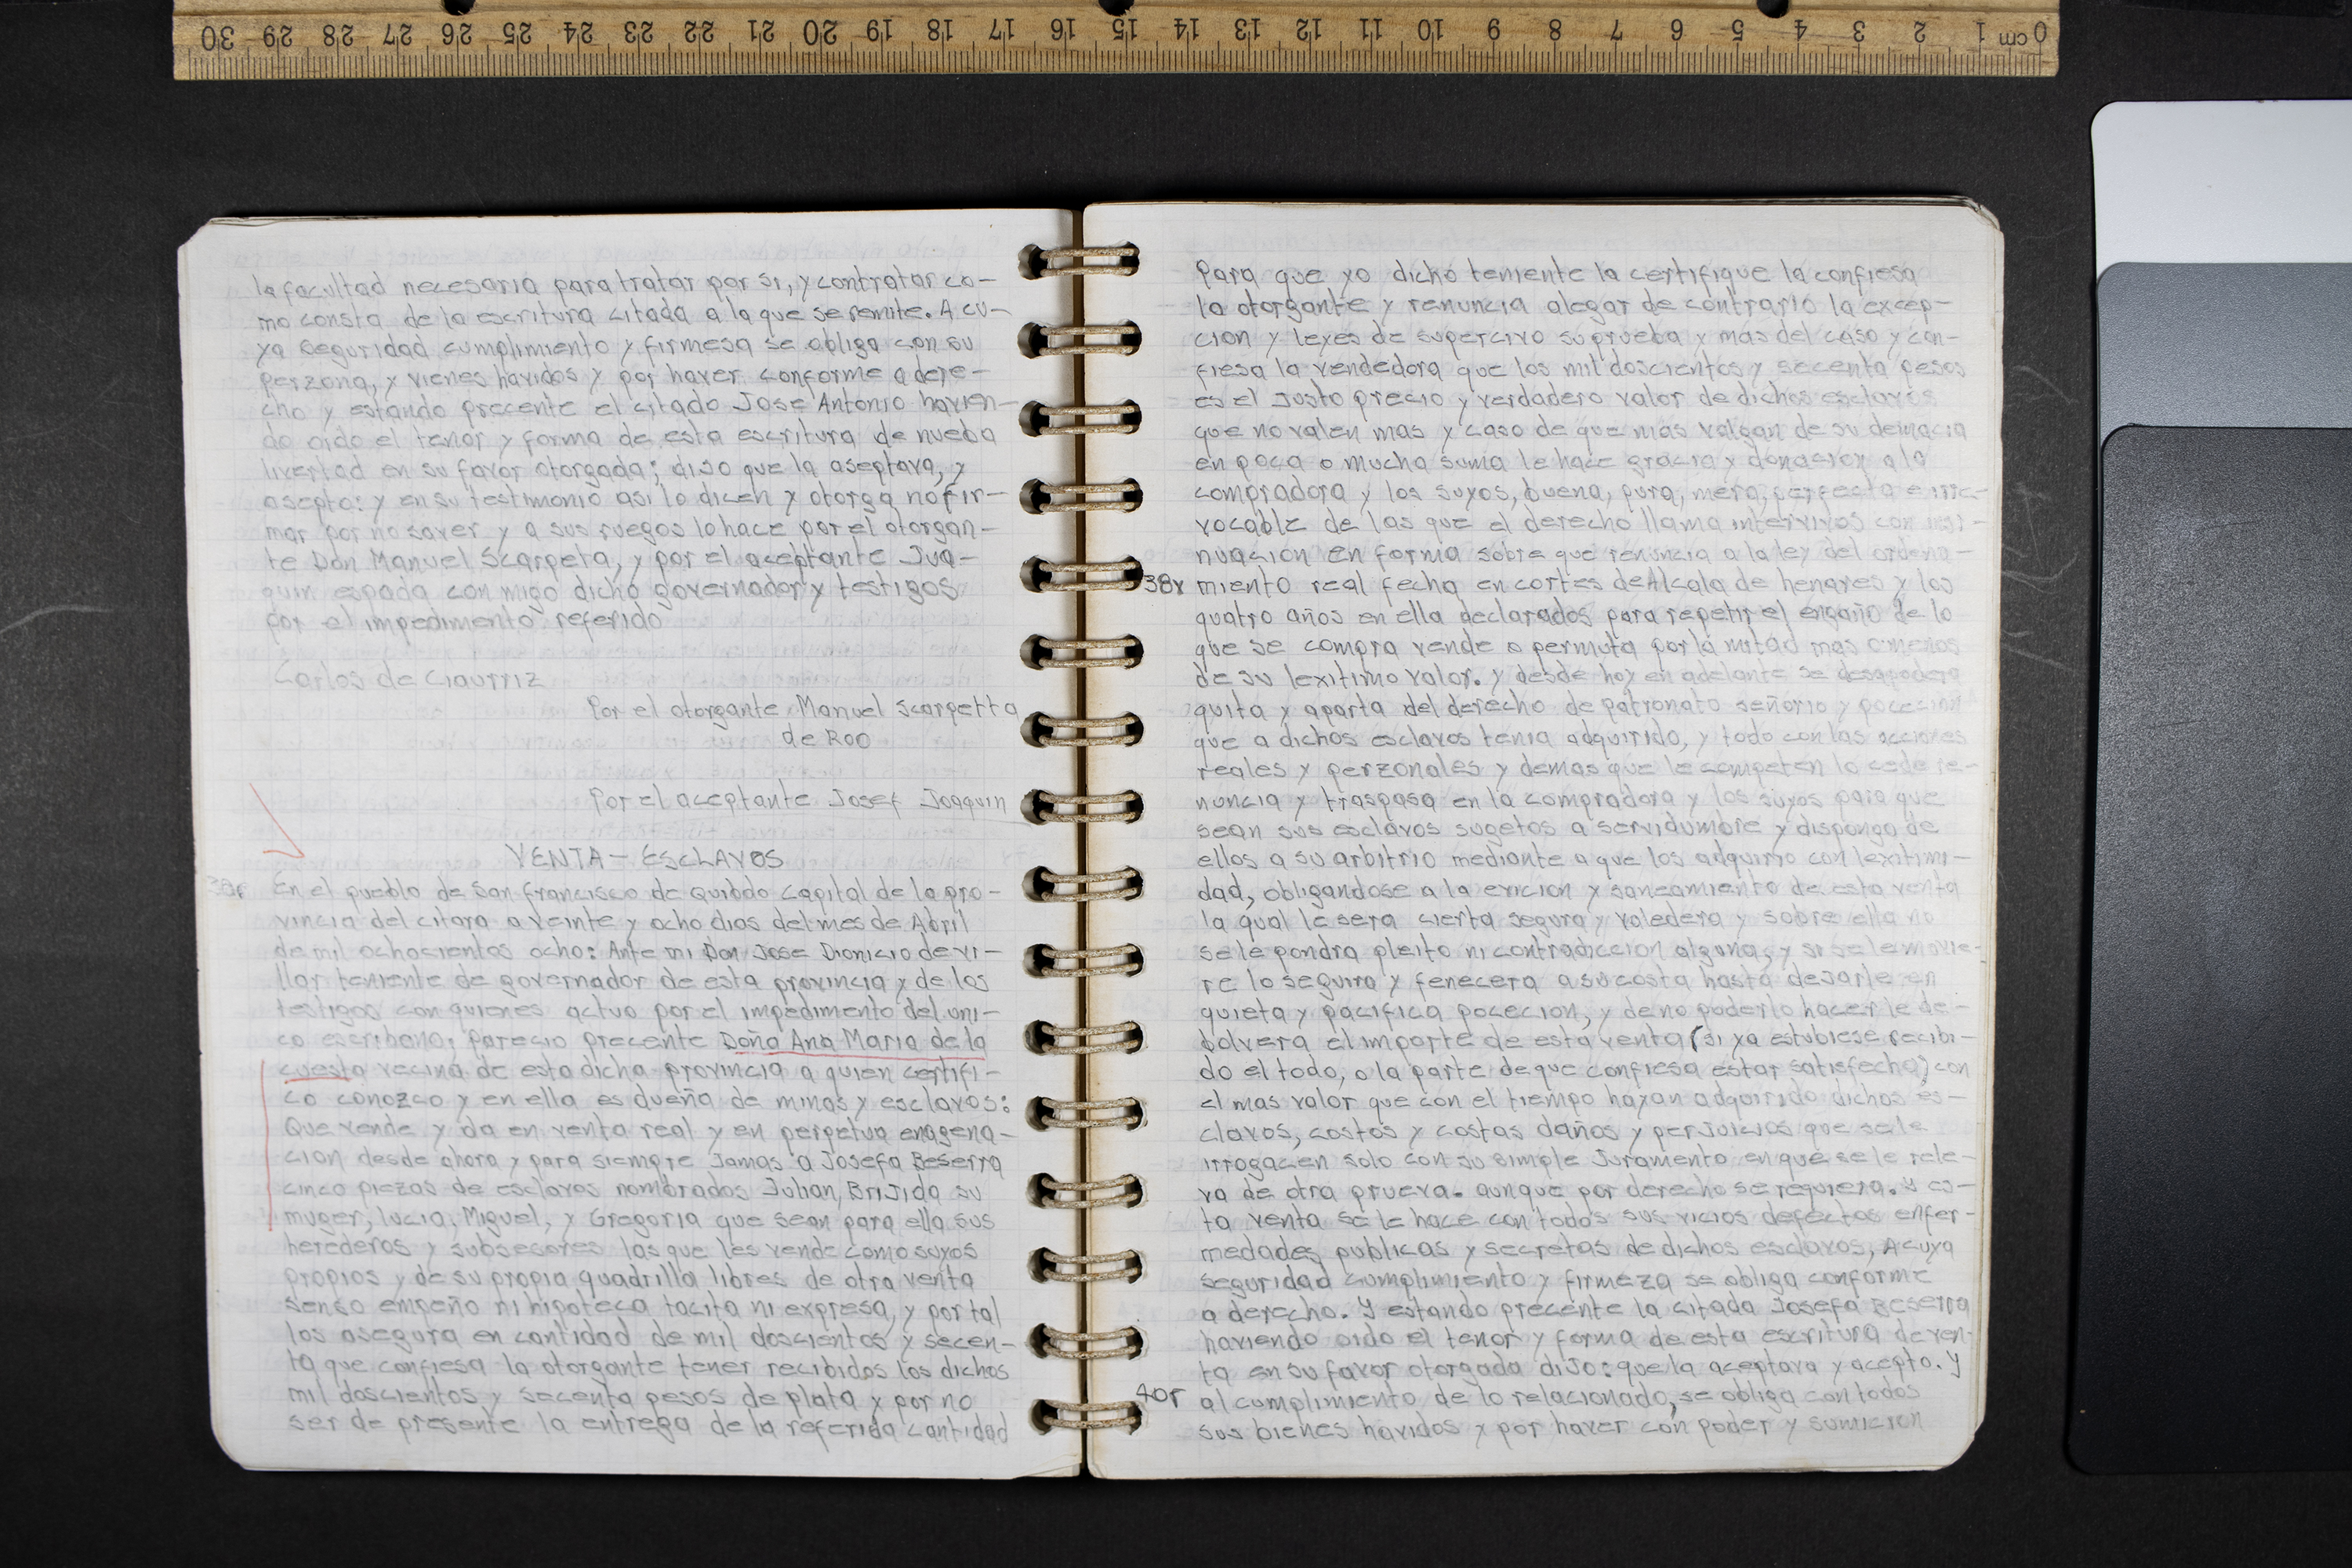 30 29 28 27 26 25 24 23 22 21 20 19 18 17 16 15 14 13 12 11 10 9 8 7 6 5 4 3 2 1 cm 0
la facultad necesaria para tratar por si, y contratar co-
mo consta de la escritura citada a la que se remite. A cu-
ya seguridad cumplimiento y firmesa se obliga con su
perzona, y vienes havidos y por haver conforme a dere-
cho y estando precente el citado Jose Antonio havien-
do oido el tenor y forma de esta escritura de nueba
livertad en su favor otorgada; dijo que la aseptava, y
asepto: y en su testimonio asi lo dicen y otorga no fir-
mar por no saver y a sus ruegos lo hace por el otorgan-
te Don Manuel Scarpeta, y por el aceptante Jua-
quin espada con migo dicho governador y testigos
por el impedimento referido
Carlos de Ciaurriz
Por el otorgante Manuel Scarpetta
de Roo
Por el aceptante Josef Joaquin
VENTA - ESCLAVOS
38r En el pueblo de San francisco de Quibdo capital de la pro-
vincia del citara a veinte y ocho dias del mes de Abril
de mil ochocientos ocho: Ante mi Don Jose Dionicio de vi-
llar teniente de governador de esta provincia y de los
testigos con quienes actuo por el impedimento del uni-
co escribano; parecio precente Doña Ana Maria de la
cuesta vecina de esta dicha provincia a quien certifi-
co conozco y en ella es dueña de minas y esclavos:
Que vende y da en venta real y en perpetua enagena-
cion desde ahora y para siempre Jamas a Josefa Beserra
cinco piezas de esclavos nombrados Julian, Brijida su
muger, lucia, Miguel, y Gregoria que sean para ella sus
herederos y subsesores las que les vende como suyos
propios y de su propia quadrilla libres de otra venta
senso empeño ni hipoteca tacita ni expresa, y por tal
los asegura en cantidad de mil doscientos y secen-
ta que confiesa la otorgante tener recibidos los dichos
mil doscientos y secenta pesos de plata y por no
ser de presente la entrega de la referida cantidad
Para que yo dicho temiente la certifique la confiesa
la otorgante y renuncia alegar de contrario la excep-
cion y leyes de supercivo su prueba y mas del caso y con-
fiesa la vendedora que los mil doscientos y secenta pesos
es el Justo precio y verdadero valor de dichos esclavos
que no valen mas y caso de que mas valgan de su demacia
en poca o mucha suma le hace gracia y donacion a la
compradora y los suyos, buena, pura, mera, perfecta e irre-
vocable de las que el derecho llama intervivos con insi-
nuacion en forma sobre que renuncia a la ley del ordena-
38v miento real fecha en cortes de Alcala de henares y los
quatro años en ella declarados para repetir el engaño de lo
que se compra vende o permuta por la mitad mas o menos
de su lexitimo valor. y desde hoy en adelante se desapodera
quita y aparta del derecho de patronato señorio y pocecion
que a dichos esclavos tenia adquirido, y todo con las acciones
reales y perzonales y demas que le competen lo cede re-
nuncia y traspasa en la compradora y los suyos para que
sean sus esclavos sugetos a servidumbre y disponga de
ellos a su arbitrio mediante a que los adquirio con lexitimi-
dad, obligandose a la evicion y saneamiento de esta venta
la qual le sera cierta segura y valedera y sobre ella no
se le pondra pleito ni contradiccion alguna, y si se le movie-
re lo seguira y fenecera a su costa hasta dejarle en
quieta y pacifica pocecion, y de no poderlo hacer le de-
bolvera el importe de esta venta (si ya estubiese recibi-
do el todo, o la parte de que confiesa estar satisfecha) con
el mas valor que con el tiempo hayan adquirido dichos es-
clavos, costos y costas daños y perjuicios que se le
irrogacen solo con su simple Juramento en que se le rele-
va de otra prueva. aunque por derecho se requiera. Y es-
ta venta se le hace con todos sus vicios defectos enfer-
medades publicas y secretas de dichos esclavos, A cuya
seguridad cumplimiento y firmeza se obliga conforme
a derecho. Y estando precente la citada Josefa Beserra
haviendo oido el tenor y forma de esta escritura de ven-
ta en su favor otorgada dijo: que la aceptava y acepto. Y
40r al cumplimiento de lo relacionado, se obliga con todos
sus bienes havidos y por haver con poder y sumicion